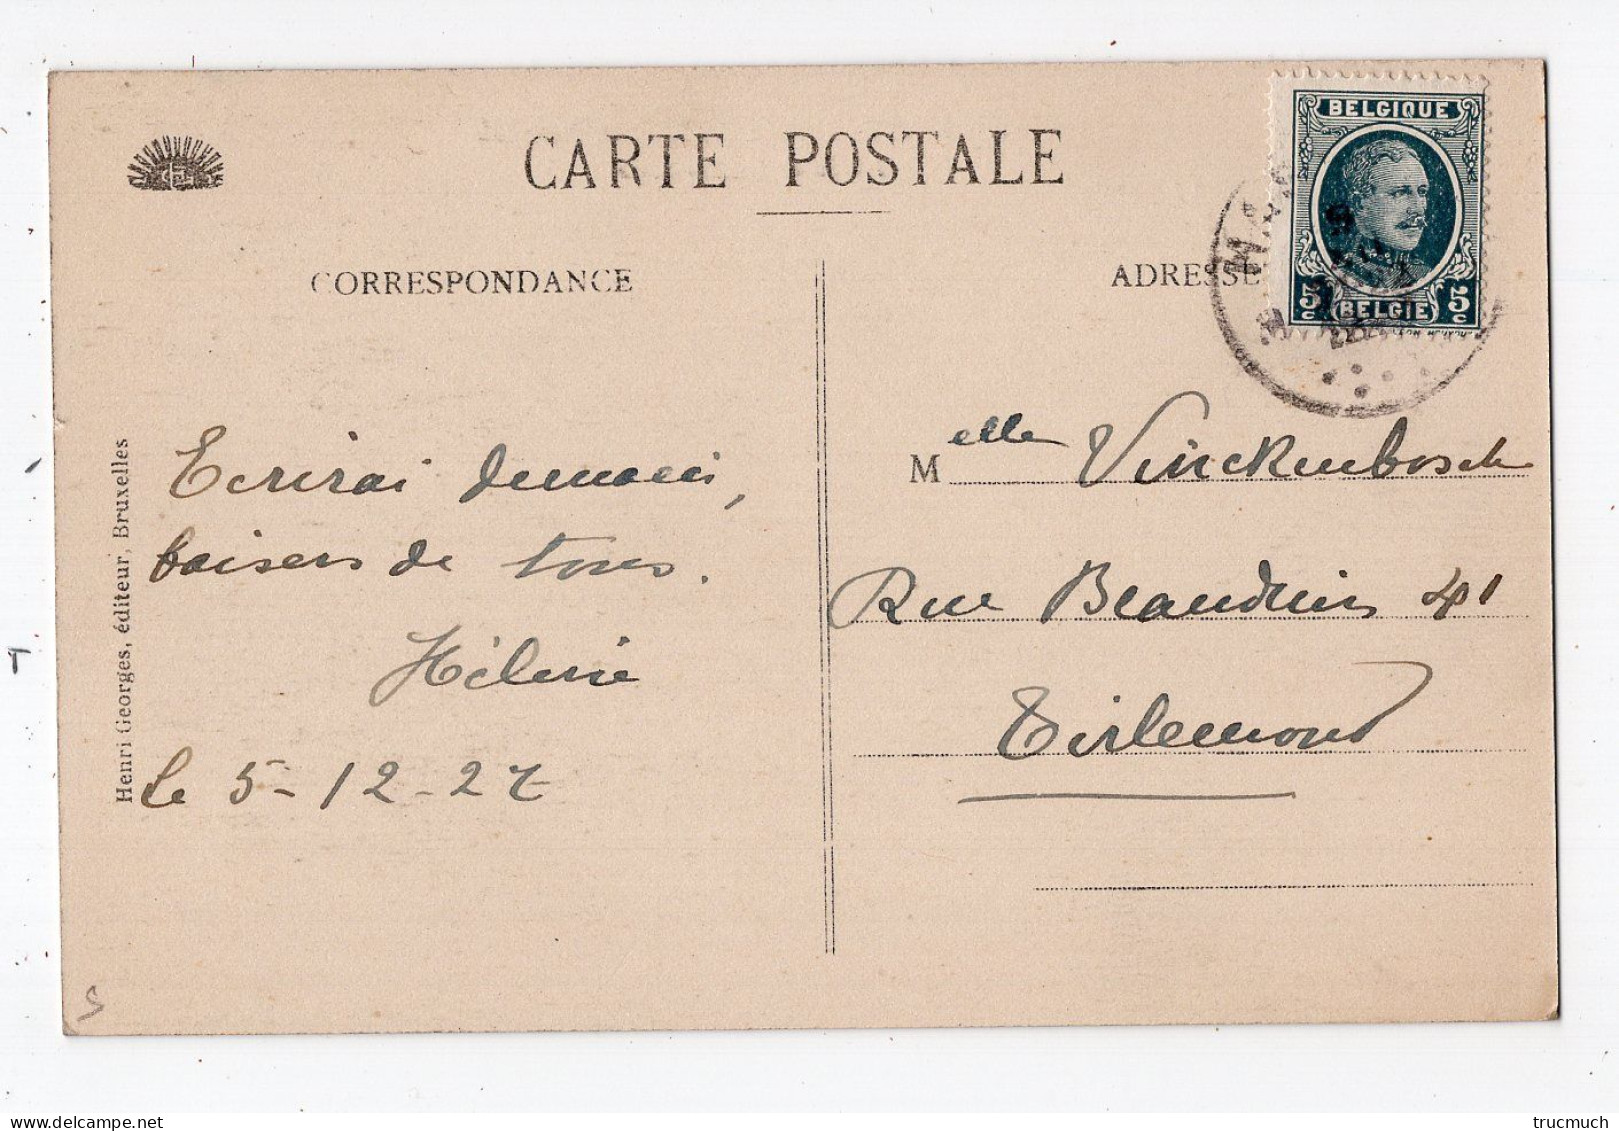 CARTE POSTALE
CORRESPONDANCE
ADRESSE
BELGIQUE
5c BELGIE 5c
Ecrirai demain,
baisers de tous.
Hélène
le 5-12-27
Melle Vinckenbosch
Rue Beauduin 41
Tirlemont
Henri Georges, éditeur, Bruxelles
S
trucmuch